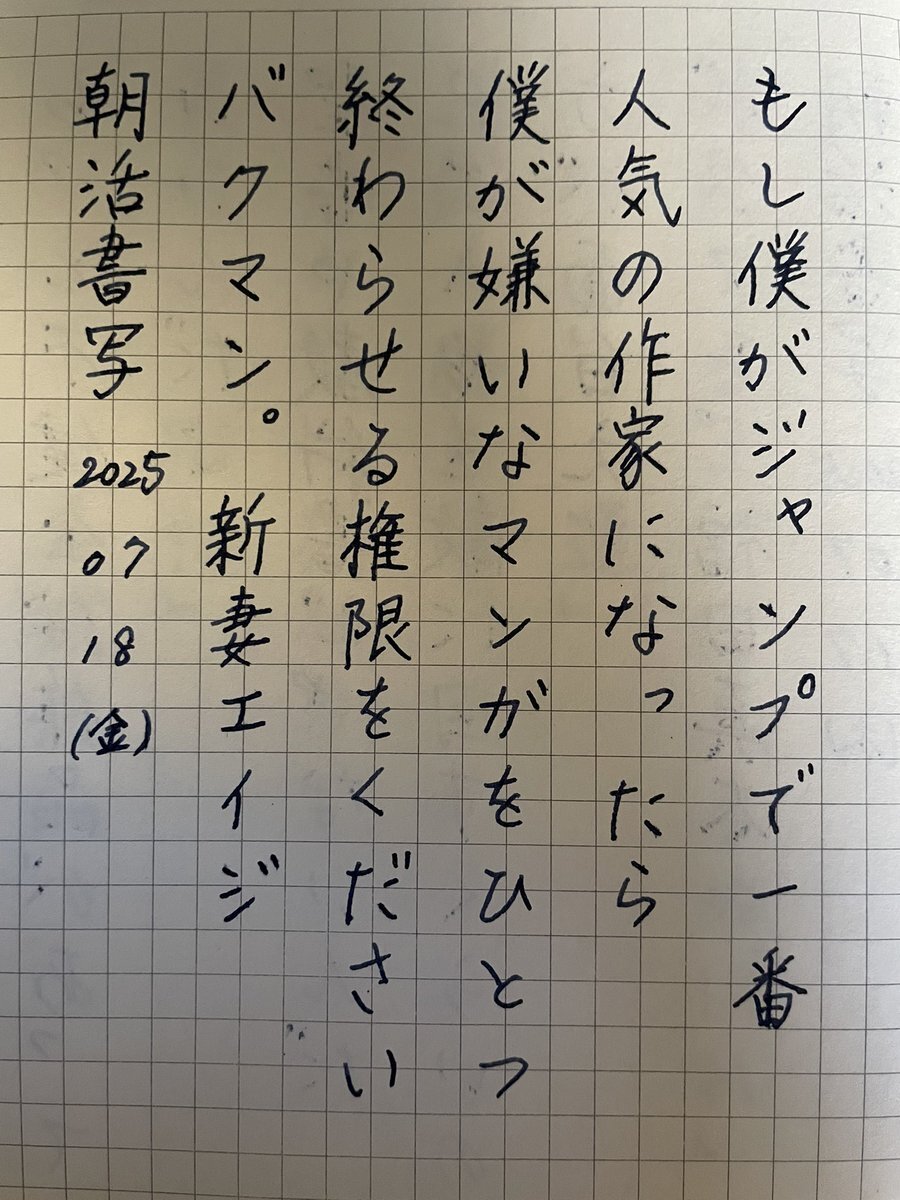 もし僕がジャンプで一番
人気の作家になったら
僕が嫌いなマンガをひとつ
終わらせる権限をください
バクマン。 新妻エイジ
朝活書写 2025 07 18 (金)